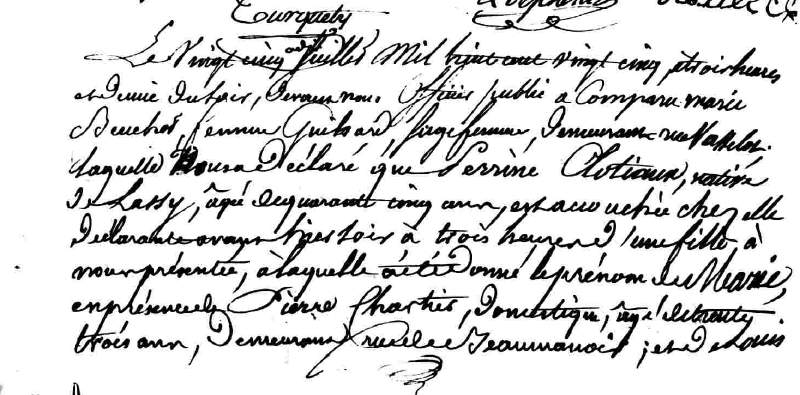 Turquety
Le Vingt cinq juillet Mil huit cent vingt cinq, à trois heures
et demie du soir, devant nous officier public a comparu marie
Bouchet, femme Guihard, sage femme, demeurant rue Vasselot,
laquelle Nous a déclaré que Perrine Clotiaux, native
de Lassy, âgée de quarante cinq ans, est accouchée chez elle
déclarante avant hier soir à trois heures d'une fille, à
nous présentée, à laquelle a été donné le prénom de Marie,
en présence de Pierre Chartier, domestique, âgé de trente
trois ans, demeurant rue de Beaumanoir ; et de Louis